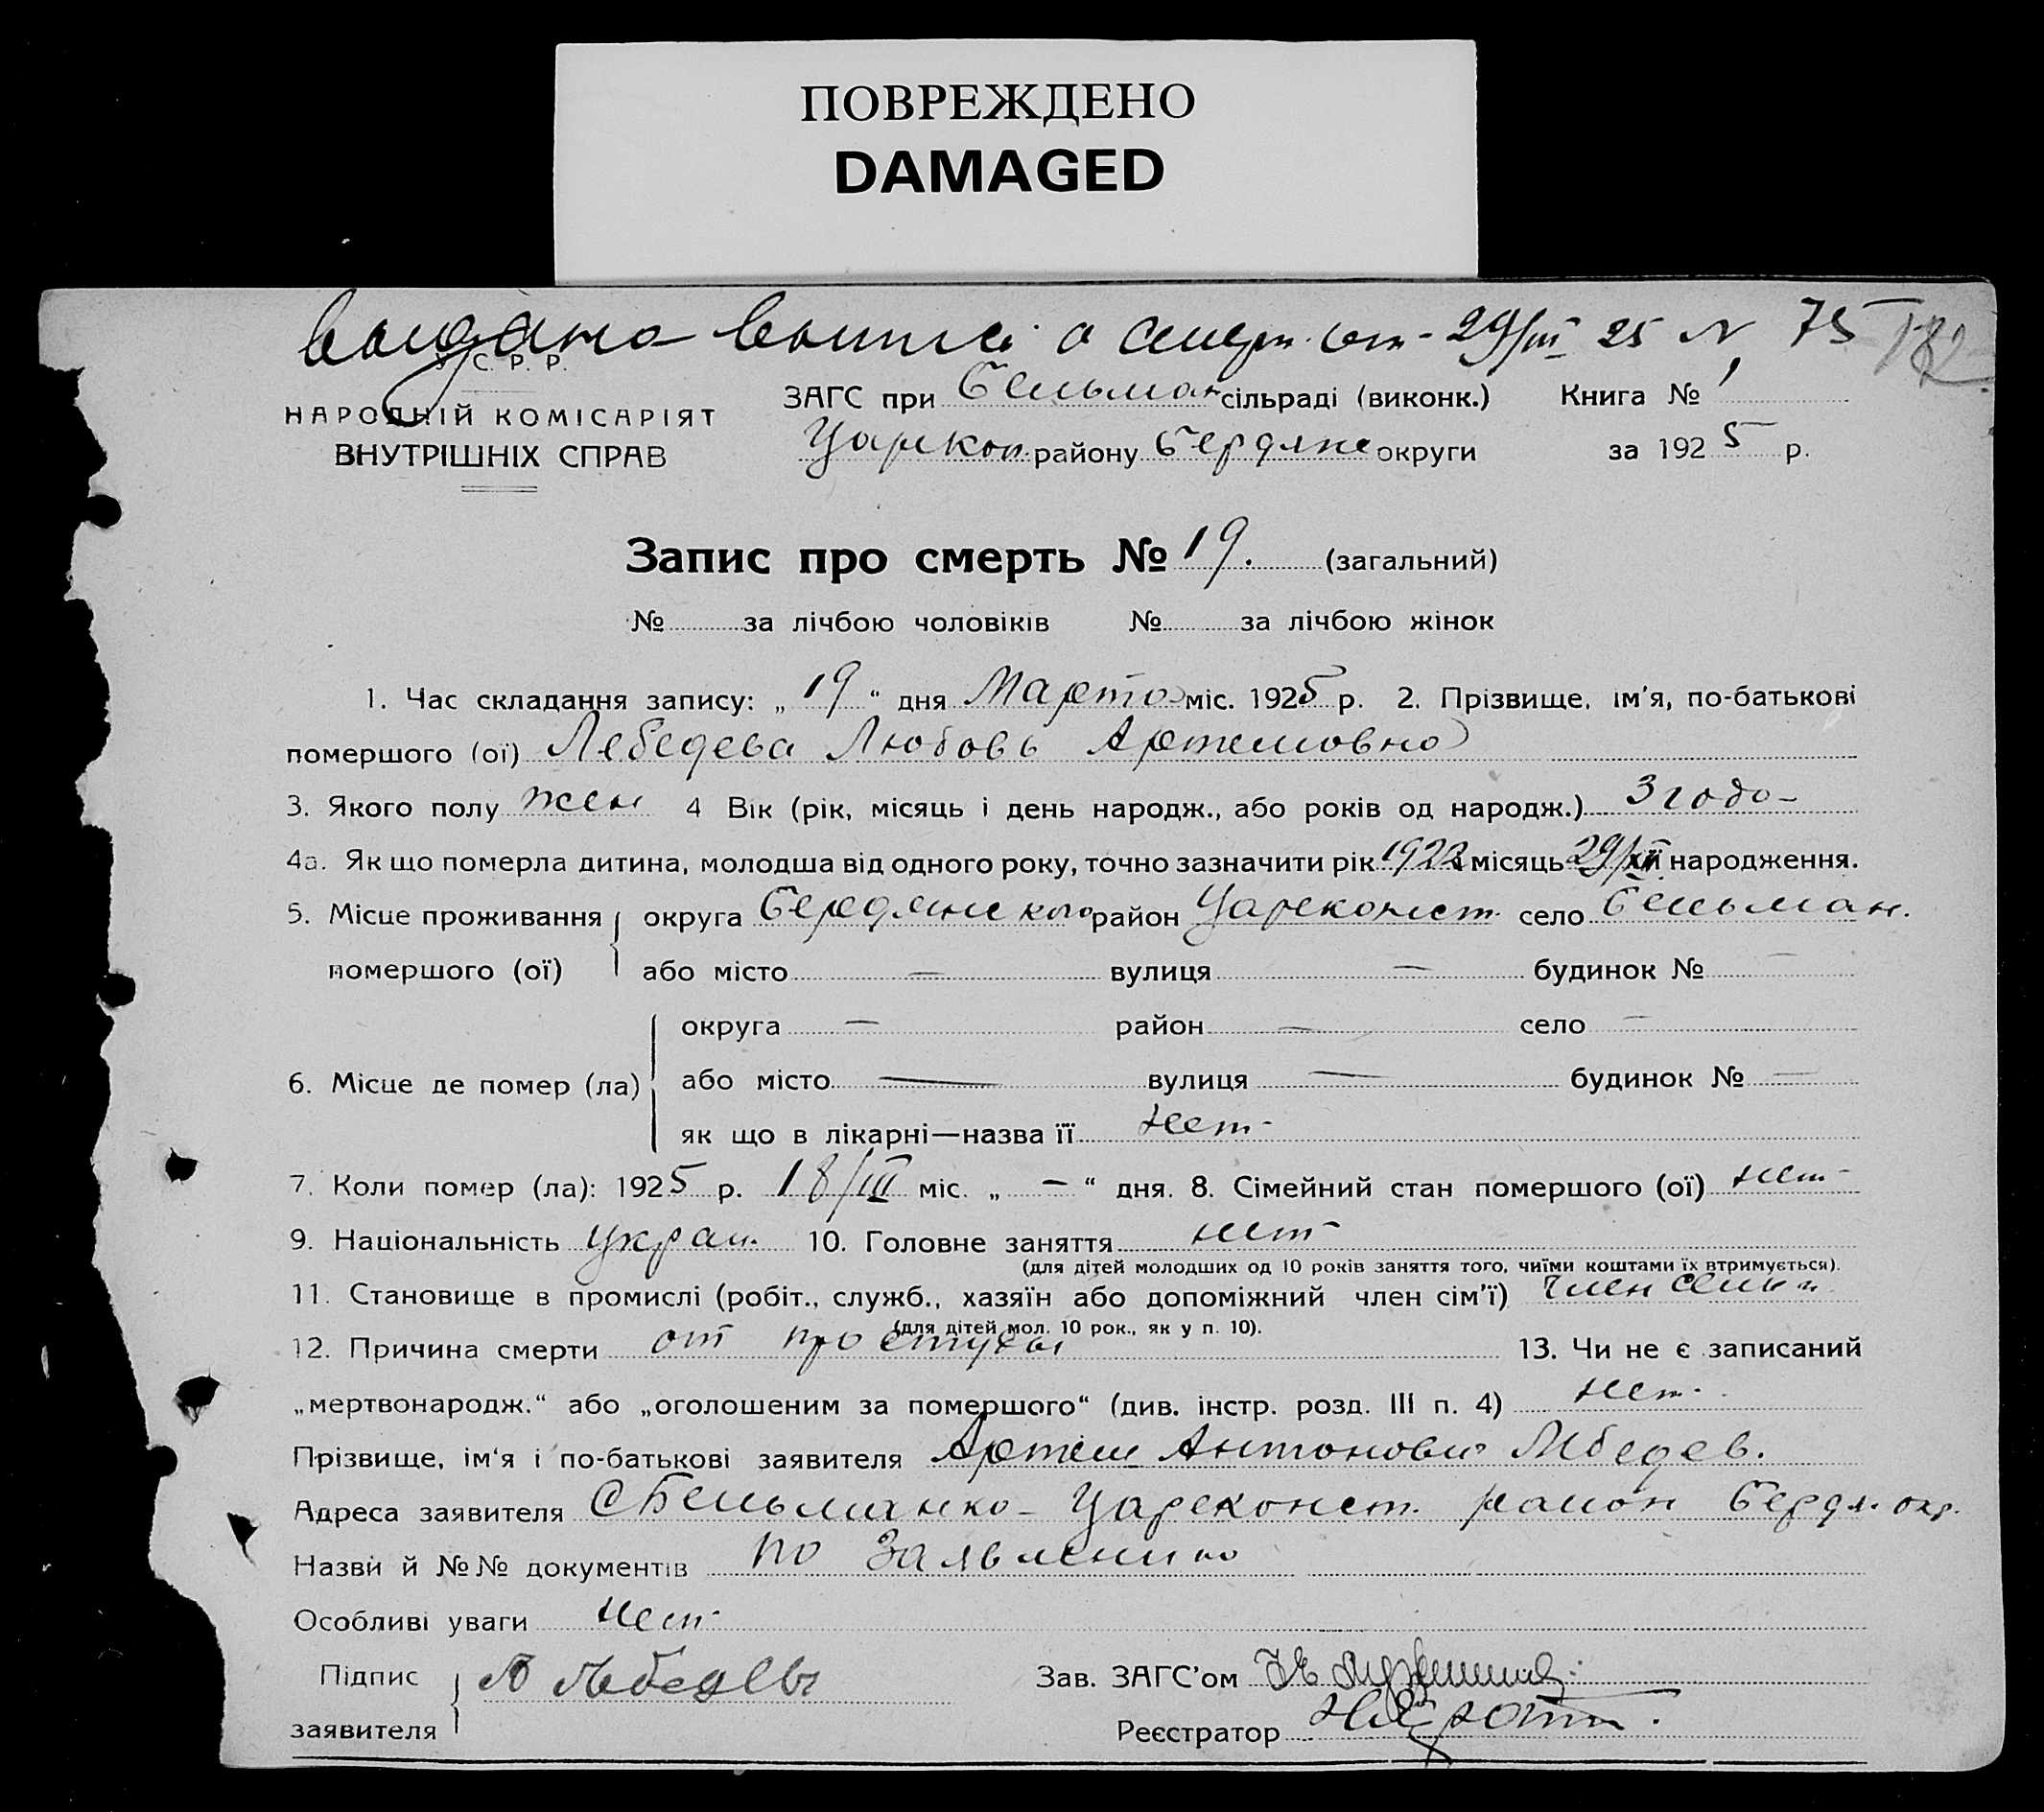 ПОВРЕЖДЕНО
DAMAGED
выдана выпись о смерт. от- 29/III 25 N 75
У. С. Р. Р.
НАРОДНІЙ КОМІСАРІЯТ
ВНУТРІШНІХ СПРАВ
ЗАГС при Бельман сільраді (виконк.) Книга № 1
Царекон. району Бердянс округи за 1925 р.
Запис про смерть № 19. (загальний)
№ за лічбою чоловіків № за лічбою жінок
1. Час складання запису: „19“ дня Марта міс. 1925 р. 2. Прізвище, ім'я, по-батькові
помершого (ої) Лебедева Любовь Артемовна
3. Якого полу жен 4 Вік (рік, місяць і день народж., або років од народж.) 3 года-
4а. Як що померла дитина, молодша від одного року, точно зазначити рік 1922 і місяць 29/XII її народження.
5. Місце проживання округа Бердянского район Цареконст. село Бельман.
помершого (ої) або місто — вулиця — будинок № —
округа — район — село —
6. Місце де помер (ла) або місто — вулиця — будинок № —
як що в лікарні—назва її нет-
7. Коли помер (ла): 1925 р. 18/III міс. „—“ дня. 8. Сімейний стан помершого (ої) нет-
9. Національність украи. 10. Головне заняття нет
(для дітей молодших од 10 років заняття того, чиїми коштами їх втримується).
11. Становище в промислі (робіт., служб., хазяїн або допоміжний член сім'ї) член семьи
(для дітей мол. 10 рок., як у п. 10).
12. Причина смерти от простуды 13. Чи не є записаний
„мертвонародж.“ або „оголошеним за помершого“ (див. інстр. розд. III п. 4) нет.
Прізвище, ім'я і по-батькові заявителя Артем Антонович Лебедев.
Адреса заявителя С Бельманка- Цареконст. район Бердя. окр.
Назви й №№ документів по Заявлению
Особливі уваги нет-
Підпис
заявителя А Лебедев
Зав. ЗАГС'ом
Реєстратор